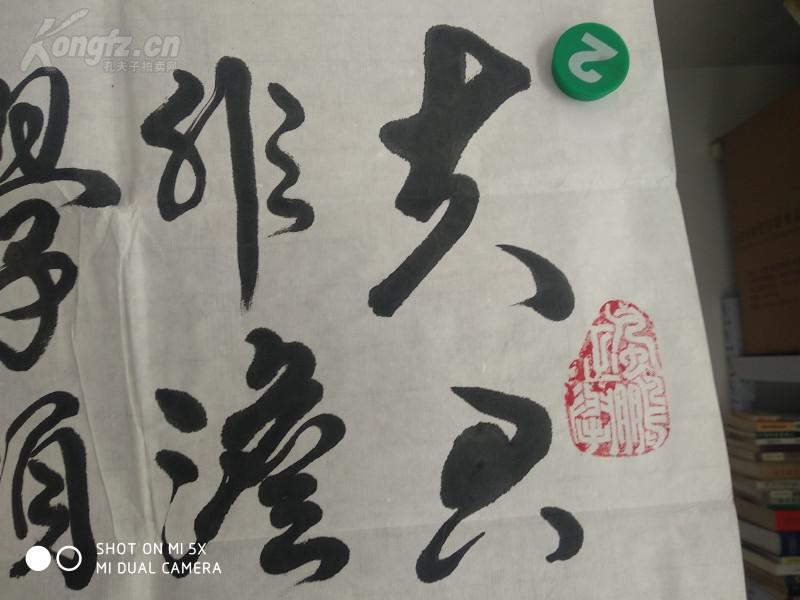 夫君
非澹
學須
Kongfz.cn
孔夫子拍卖网
SHOT ON MI 5X
MI DUAL CAMERA